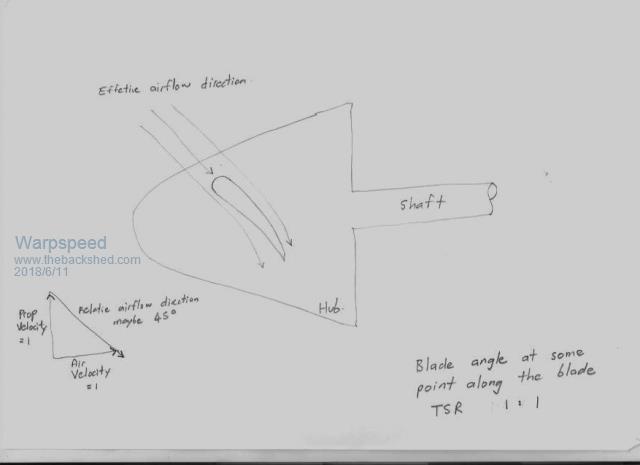 Effetive airflow direction.
Shaft
Warpspeed
www.thebackshed.com
2018/6/11
Relatie airflow direction
maybe 45°
Prop
Velocity
=1
Air
Velocity
=1
Hub.
Blade angle at some
point along the blade
TSR 1:1